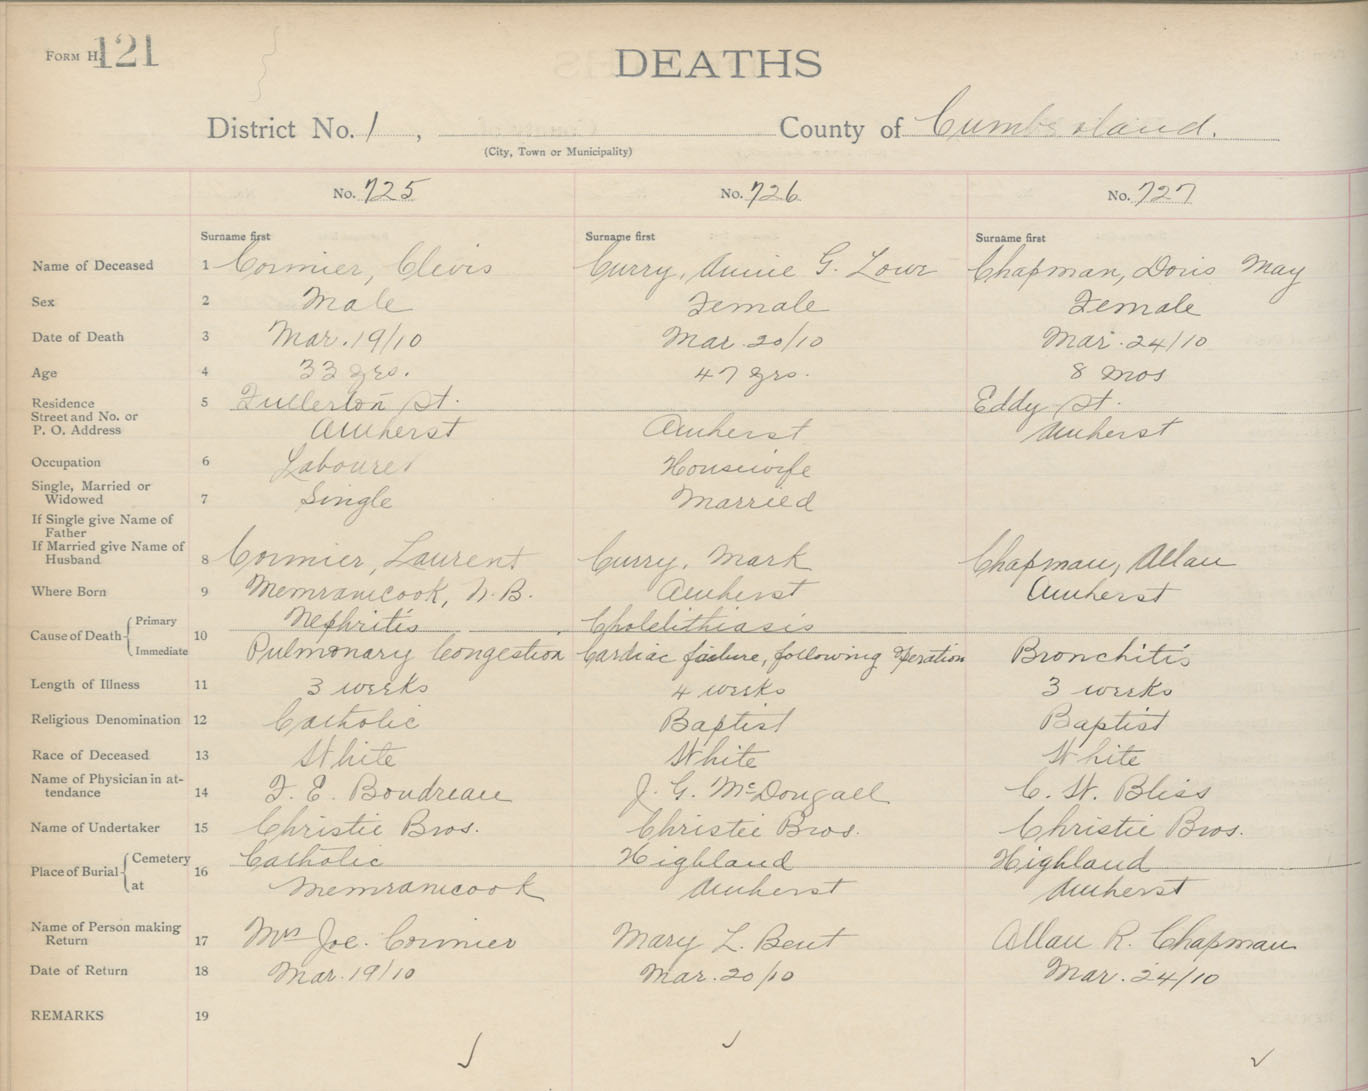 FORM H. 121
DEATHS
District No. 1 , County of Cumberland.
(City, Town or Municipality)
No. 725 No. 726 No. 727
Surname first Surname first Surname first
Name of Deceased 1 Cormier, Clivis Curry, Annie G. Lowe Chapman, Doris May
Sex 2 Male Female Female
Date of Death 3 Mar. 19/10 Mar. 20/10 Mar. 24/10
Age 4 33 yrs. 47 yrs. 8 mos
Residence 5 Fullerton St. Eddy St.
Street and No. or
P. O. Address Amherst Amherst Amherst
Occupation 6 Labourer Housewife
Single, Married or
Widowed 7 Single Married
If Single give Name of
Father
If Married give Name of
Husband 8 Cormier, Laurent Curry, Mark Chapman, Allan
Where Born 9 Memramcook, N.B. Amherst Amherst
Cause of Death 10 Primary Nephritis Cholelithiasis
Immediate Pulmonary Congestion Cardiac failure, following Operation Bronchitis
Length of Illness 11 3 weeks 4 weeks 3 weeks
Religious Denomination 12 Catholic Baptist Baptist
Race of Deceased 13 White White White
Name of Physician in at-
tendance 14 F. E. Boudreau J. G. McDougall C. W. Bliss
Name of Undertaker 15 Christie Bros. Christie Bros. Christie Bros.
Place of Burial 16 Cemetery Catholic Highland Highland
at Memramcook Amherst Amherst
Name of Person making
Return 17 Mrs Joe. Cormier Mary L. Bent Allan R. Chapman
Date of Return 18 Mar. 19/10 Mar. 20/10 Mar. 24/10
REMARKS 19